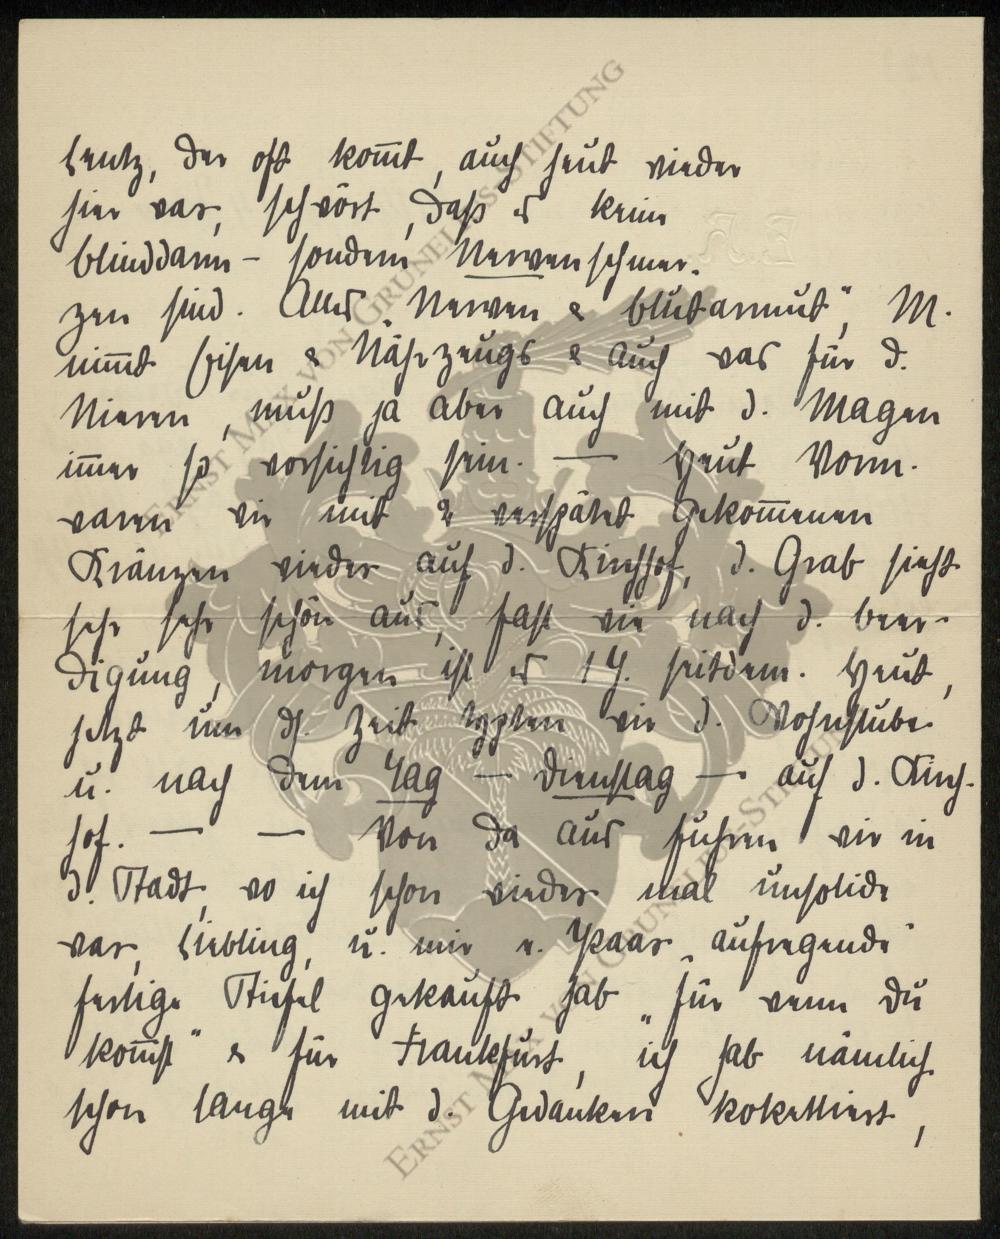 Lentz, der oft kom̅t, auch heut wieder
hier war, schwört, daß es keine
Blinddarm- sondern Nervenschmer-
zen sind. Alles "Nerven & Blutarmut", M.
nim̅t Eisen & Nährzeugs & auch was für d.
Nieren, muß ja aber auch mit d. Magen
im̅er so vorsichtig sein. — Heut Vorm.
waren wir mit 2 verspätet gekom̅enen
Kränzen wieder auf d. Kirchhof, d. Grab sieht
sehr sehr schön aus, fast wie nach d. Beer-
digung, morgen ist es 1 J. seitdem. Heut,
jetzt um ds. Zeit wir d. Wohnstube
u. nach dem Tag — Dienstag — auf d. Kirch-
hof. — — Von da aus fuhren wir in
d. Stadt, wo ich schon wieder mal unsolide
war, Liebling, u. mir e. Paar "aufregende"
fertige Stiefel gekauft hab "für wenn Du
kom̅st" & für Frankfurt, ich hab nämlich
schon lange mit d. Gedanken kokettiert,
E.H.
ERNST MAX VON GRUNELIUS-STIFTUNG
ERNST MAX VON GRUNELIUS-STIFTUNG